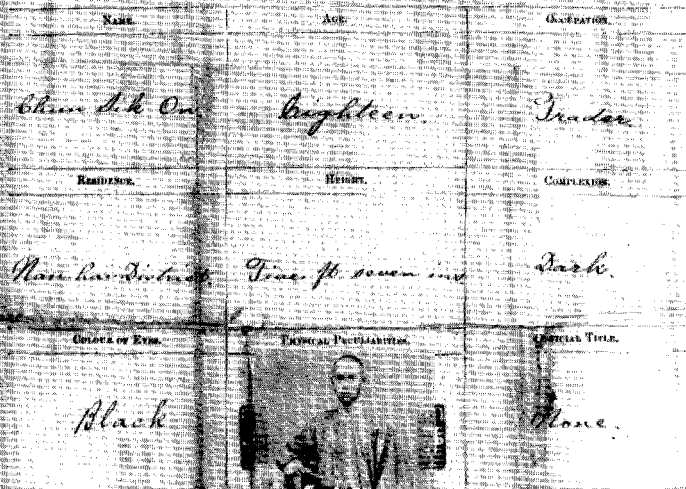 NAME. AGE. OCCUPATION.
Chun Sik On Eighteen. Trader.
RESIDENCE. HEIGHT. COMPLEXION.
Nan hai District. Five ft seven ins Dark.
COLOUR OF EYES. PHYSICAL PECULIARITIES. OFFICIAL TITLE.
Black None.